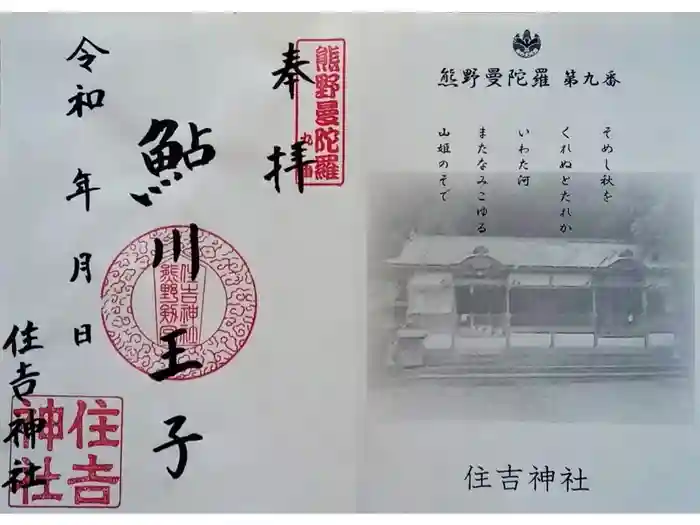 熊野曼陀羅 第九番
そめし秋を
くれぬとたれか
いわた河
またなみこゆる
山姫のそで
住吉神社
奉拝
熊野曼陀羅
九番
鮎川王子
住吉神社
令和 年 月 日
住吉神社
住吉
神社